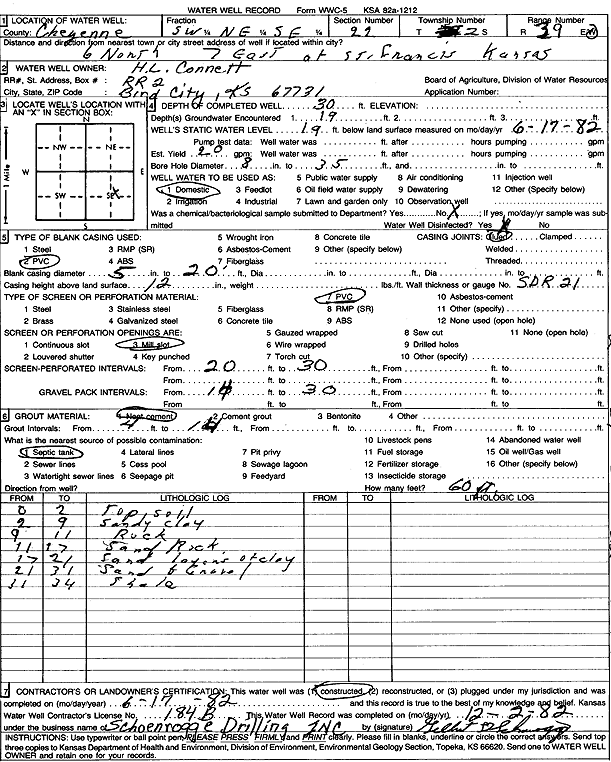 WATER WELL RECORD Form WWC-5 KSA 82a-1212
1 LOCATION OF WATER WELL: Fraction Section Number Township Number Range Number
County: Cheyenne SW ¼ NE ¼ SE ¼ 22 T 2 S R 39 E/W
Distance and direction from nearest town or city street address of well if located within city?
6 North 7 East of St. Francis Kansas
2 WATER WELL OWNER: H.L. Connett
RR#, St. Address, Box # : RR 2 Board of Agriculture, Division of Water Resources
City, State, ZIP Code : Bird City, KS 67731 Application Number:
3 LOCATE WELL'S LOCATION WITH AN "X" IN SECTION BOX:
N
NW NE
W E
SW SE X
S
1 Mile
4 DEPTH OF COMPLETED WELL 30 ft. ELEVATION:
Depth(s) Groundwater Encountered 1. 19 ft. 2. ft. 3. ft.
WELL'S STATIC WATER LEVEL 19 ft. below land surface measured on mo/day/yr 6-17-82
Pump test data: Well water was ft. after hours pumping gpm
Est. Yield 20 gpm: Well water was ft. after hours pumping gpm
Bore Hole Diameter 8 in. to 35 ft., and in. to ft.
WELL WATER TO BE USED AS: 5 Public water supply 8 Air conditioning 11 Injection well
1 Domestic 3 Feedlot 6 Oil field water supply 9 Dewatering 12 Other (Specify below)
2 Irrigation 4 Industrial 7 Lawn and garden only 10 Observation well
Was a chemical/bacteriological sample submitted to Department? Yes No X ; If yes, mo/day/yr sample was submitted
Water Well Disinfected? Yes X No
5 TYPE OF BLANK CASING USED: 5 Wrought iron 8 Concrete tile CASING JOINTS: Glued Clamped
1 Steel 3 RMP (SR) 6 Asbestos-Cement 9 Other (specify below) Welded
2 PVC 4 ABS 7 Fiberglass Threaded
Blank casing diameter 5 in. to 20 ft., Dia in. to ft., Dia in. to ft.
Casing height above land surface 12 in., weight lbs./ft. Wall thickness or gauge No. SDR 21
TYPE OF SCREEN OR PERFORATION MATERIAL: 7 PVC 10 Asbestos-cement
1 Steel 3 Stainless steel 5 Fiberglass 8 RMP (SR) 11 Other (specify)
2 Brass 4 Galvanized steel 6 Concrete tile 9 ABS 12 None used (open hole)
SCREEN OR PERFORATION OPENINGS ARE: 5 Gauzed wrapped 8 Saw cut 11 None (open hole)
1 Continuous slot 3 Mill slot 6 Wire wrapped 9 Drilled holes
2 Louvered shutter 4 Key punched 7 Torch cut 10 Other (specify)
SCREEN-PERFORATED INTERVALS: From 20 ft. to 30 ft., From ft. to ft.
From ft. to ft., From ft. to ft.
GRAVEL PACK INTERVALS: From ft. to 30 ft., From ft. to ft.
From ft. to ft., From ft. to ft.
6 GROUT MATERIAL: 1 Neat cement 2 Cement grout 3 Bentonite 4 Other
Grout Intervals: From 4 ft. to ft., From ft. to ft., From ft. to ft.
What is the nearest source of possible contamination: 10 Livestock pens 14 Abandoned water well
1 Septic tank 4 Lateral lines 7 Pit privy 11 Fuel storage 15 Oil well/Gas well
2 Sewer lines 5 Cess pool 8 Sewage lagoon 12 Fertilizer storage 16 Other (specify below)
3 Watertight sewer lines 6 Seepage pit 9 Feedyard 13 Insecticide storage
Direction from well? How many feet? 60 ft
FROM TO LITHOLOGIC LOG FROM TO LITHOLOGIC LOG
0 2 Top soil
2 9 Sandy clay
9 11 Rock
11 17 Sand Rock
17 21 Sand layers of clay
21 31 Sand & Gravel
31 34 Shale
7 CONTRACTOR'S OR LANDOWNER'S CERTIFICATION: This water well was (1) constructed, (2) reconstructed, or (3) plugged under my jurisdiction and was
completed on (mo/day/year) 6-17-82 and this record is true to the best of my knowledge and belief. Kansas
Water Well Contractor's License No. 184B This Water Well Record was completed on (mo/day/yr) 12-2-82
under the business name of Schoenrogge Drilling INC by (signature)
INSTRUCTIONS: Use typewriter or ball point pen, PLEASE PRESS FIRMLY and PRINT clearly. Please fill in blanks, underline or circle the correct answers. Send top
three copies to Kansas Department of Health and Environment, Division of Environment, Environmental Geology Section, Topeka, KS 66620. Send one to WATER WELL
OWNER and retain one for your records.